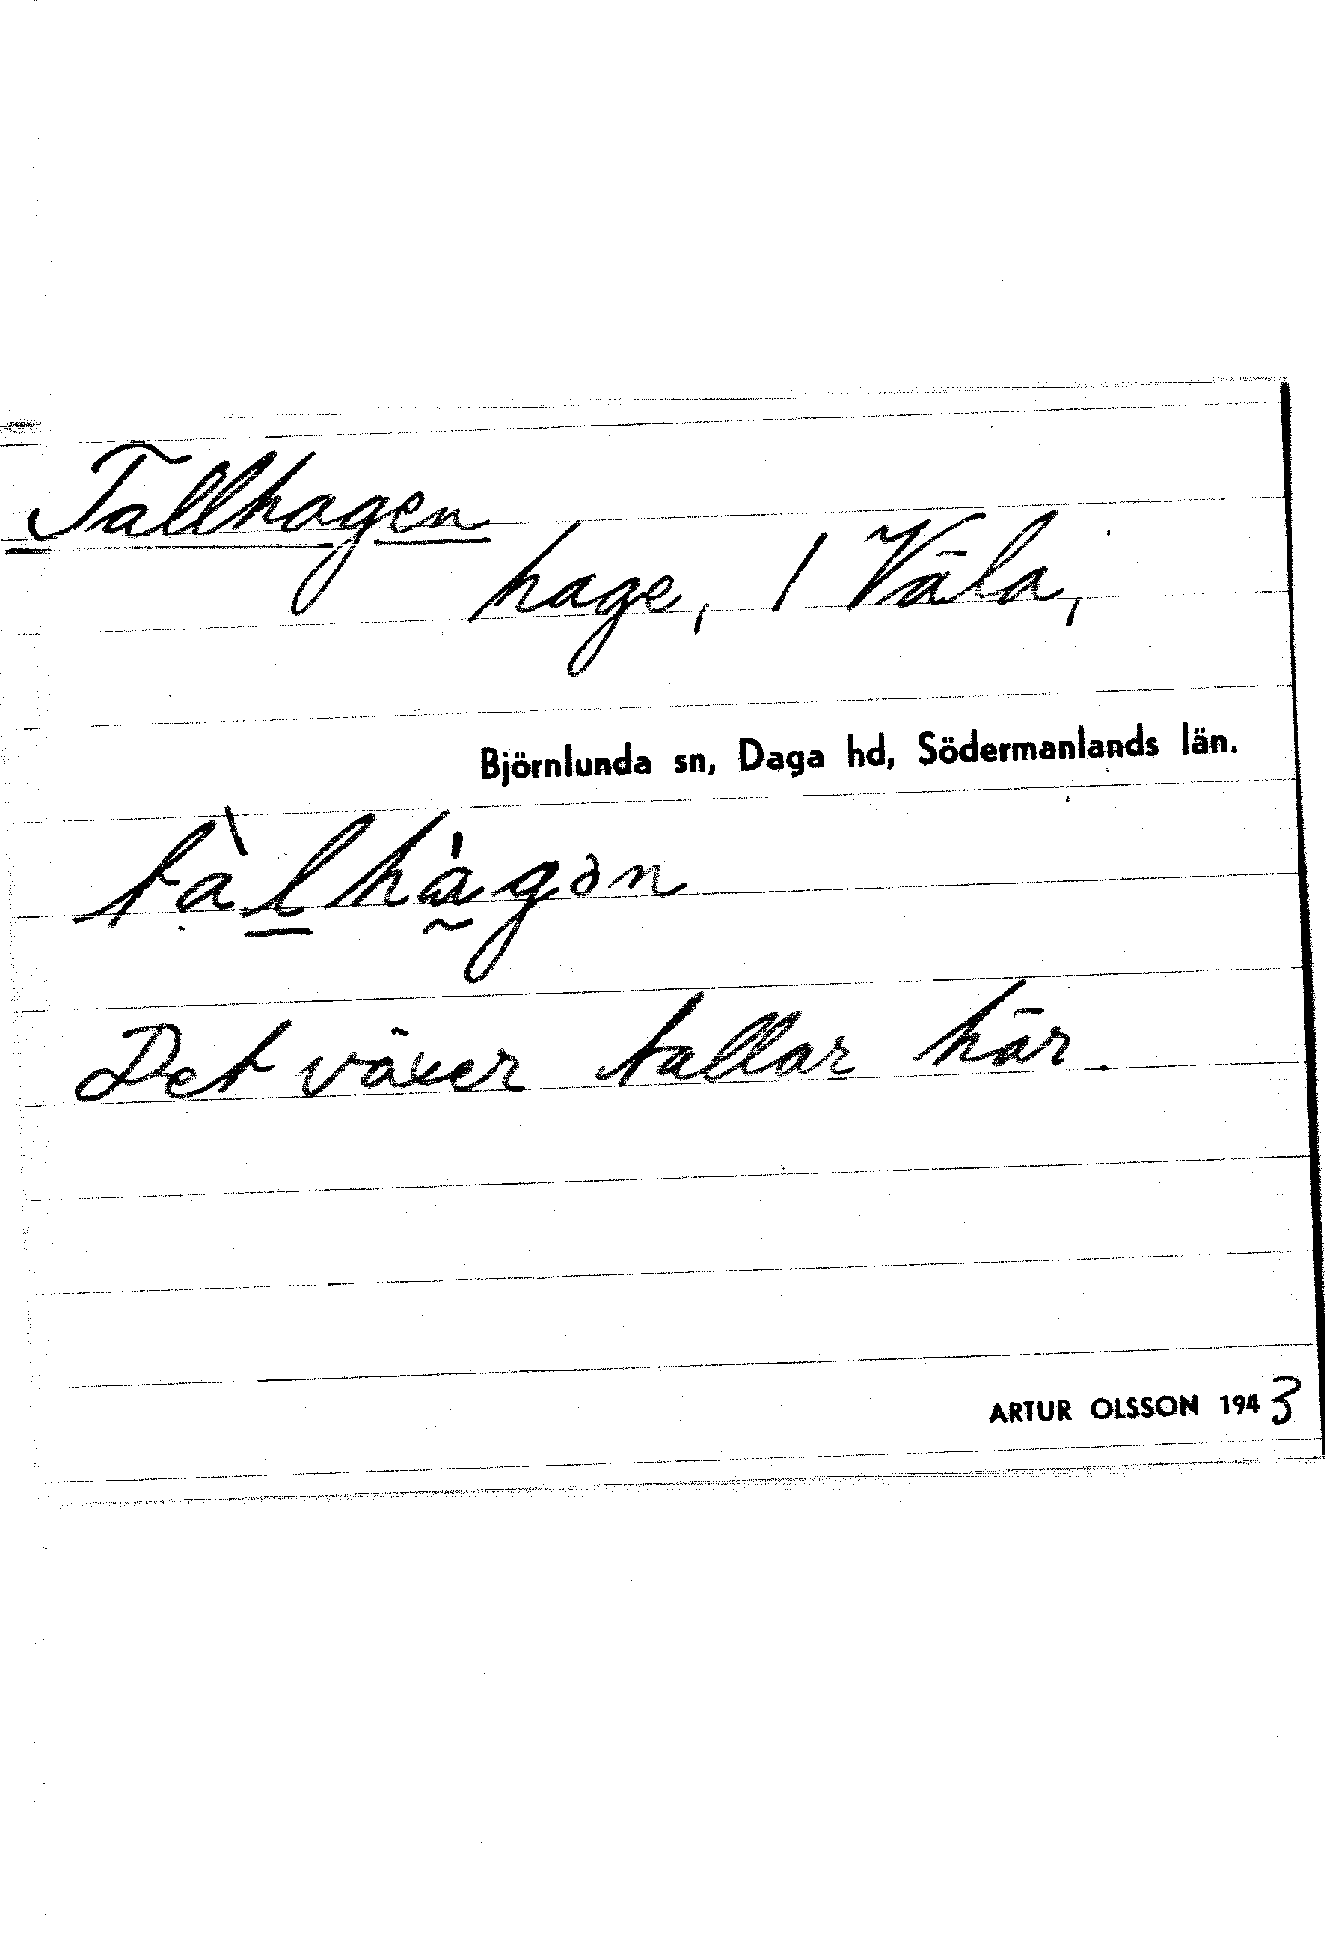 Tallhagen
hage, 1 Väla,
Björnlunda sn, Daga hd, Södermanlands län.
tàlhágən
Det växer tallar här.
ARTUR OLSSON 1943